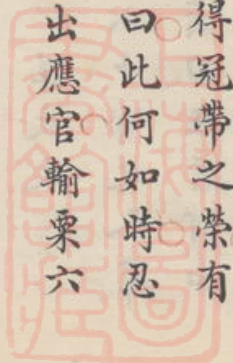 得冠帶之榮有
曰此何如時忍
出應官輸粟六